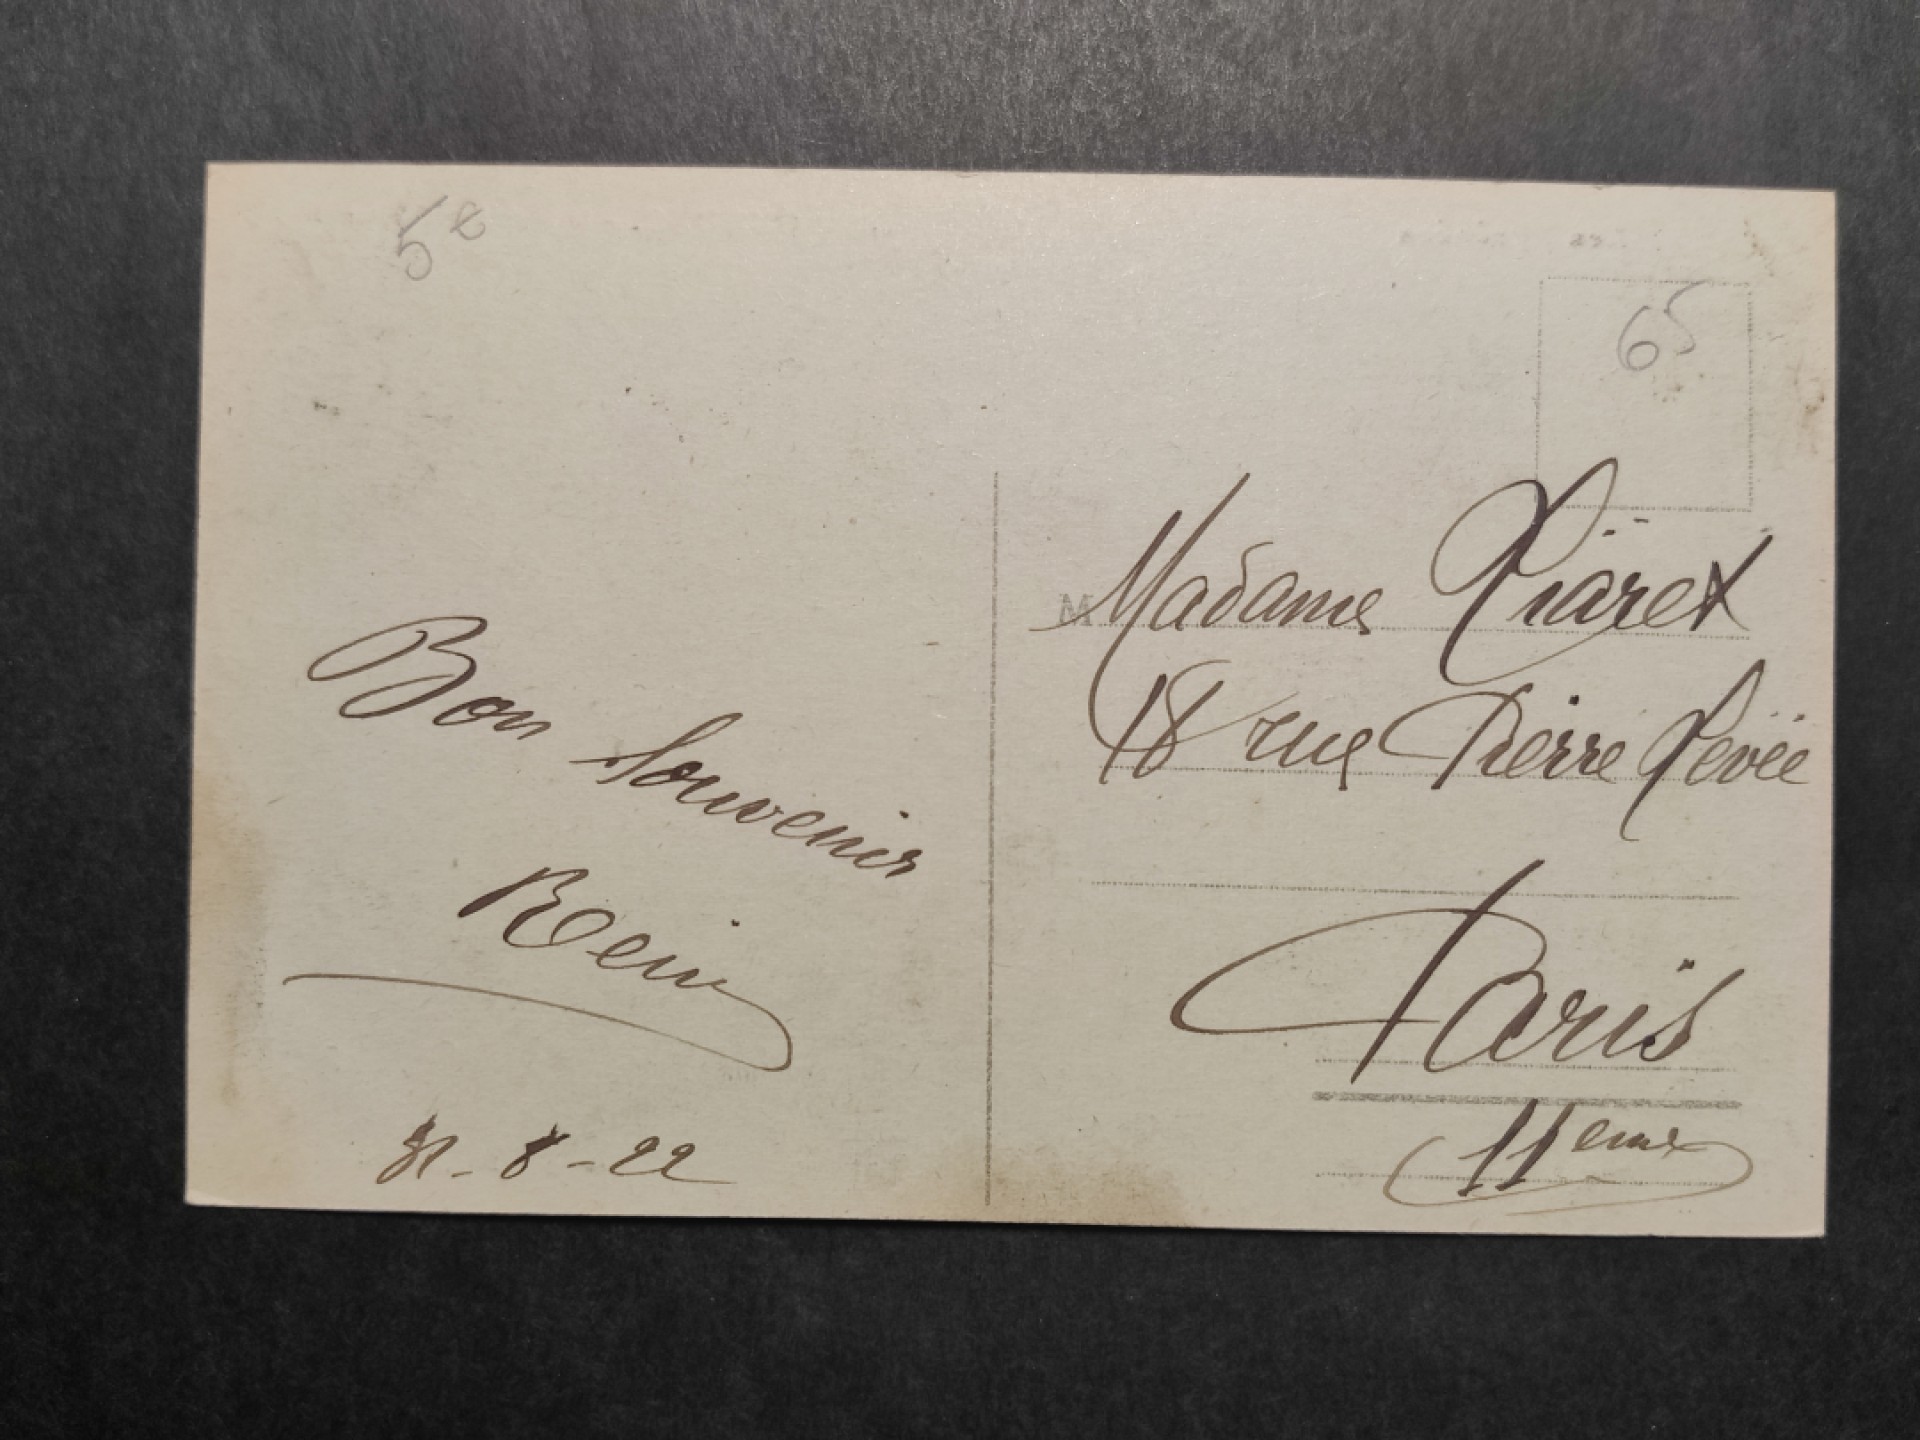 5e
65
Bon souvenir
31-8-22
M Madame Piaret
18 rue Pierre Levée
Paris
11eme